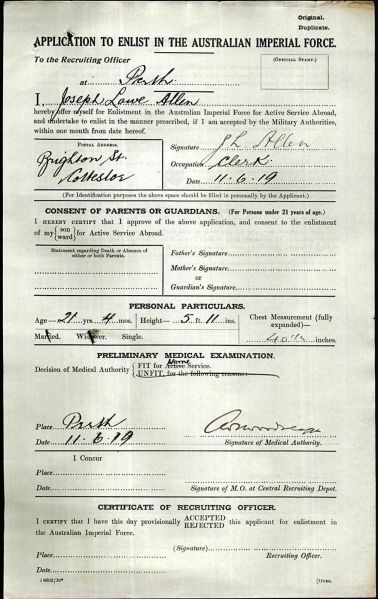 Original.
Duplicate.
APPLICATION TO ENLIST IN THE AUSTRALIAN IMPERIAL FORCE.
To the Recruiting Officer
(OFFICIAL STAMP.)
at Perth
I, Joseph Lowe Allen
hereby offer myself for Enlistment in the Australian Imperial Force for Active Service Abroad,
and undertake to enlist in the manner prescribed, if I am accepted by the Military Authorities,
within one month from date hereof.
POSTAL ADDRESS.
Brighton St.
Cottesloe
Signature J L Allen
Occupation Clerk
Date 11.6.19
(For Identification purposes the above space should be filled in personally by the Applicant.)
CONSENT OF PARENTS OR GUARDIANS. (For Persons under 21 years of age.)
I HEREBY CERTIFY that I approve of the above application, and consent to the enlistment
of my {son
{ward} for Active Service Abroad.
Statement regarding Death or Absence of
either or both Parents.
Father's Signature
Mother's Signature
or
Guardian's Signature
PERSONAL PARTICULARS.
Age—21 yrs. 4 mos.
Height—5 ft. 11 ins.
Chest Measurement (fully
expanded)—
inches.
Married. Widower. Single.
PRELIMINARY MEDICAL EXAMINATION.
Decision of Medical Authority { FIT for Active Service.
Home
{ UNFIT, for the following reasons:—
Place Perth
Date 11.6.19
Signature of Medical Authority.
I Concur
Place
Date
Signature of M.O. at Central Recruiting Depot.
CERTIFICATE OF RECRUITING OFFICER.
I CERTIFY that I have this day provisionally ACCEPTED
REJECTED this applicant for enlistment in
the Australian Imperial Force.
(Signature)
Place
Recruiting Officer.
Date
[OVER.